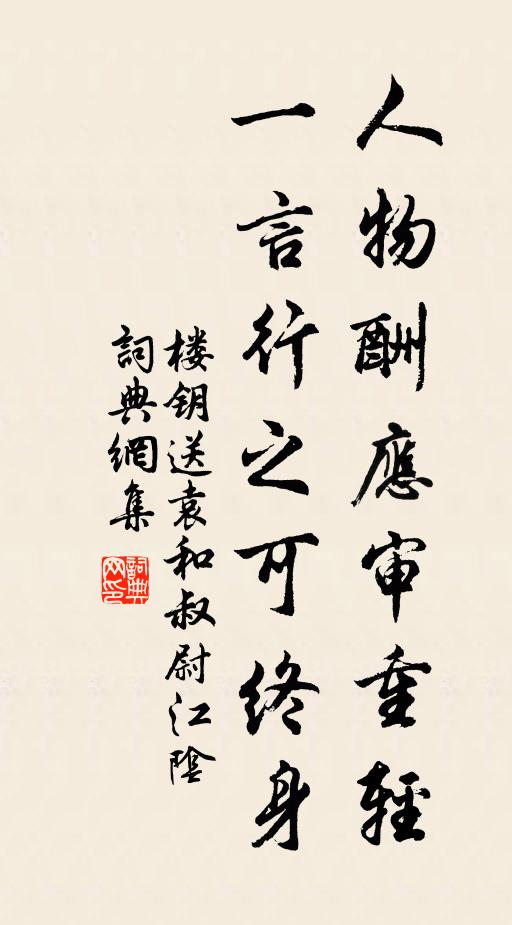 人物酬應审重輕
一言行之可终身
楼钥送袁和叔尉江陰
詞典網集
詞典
网印